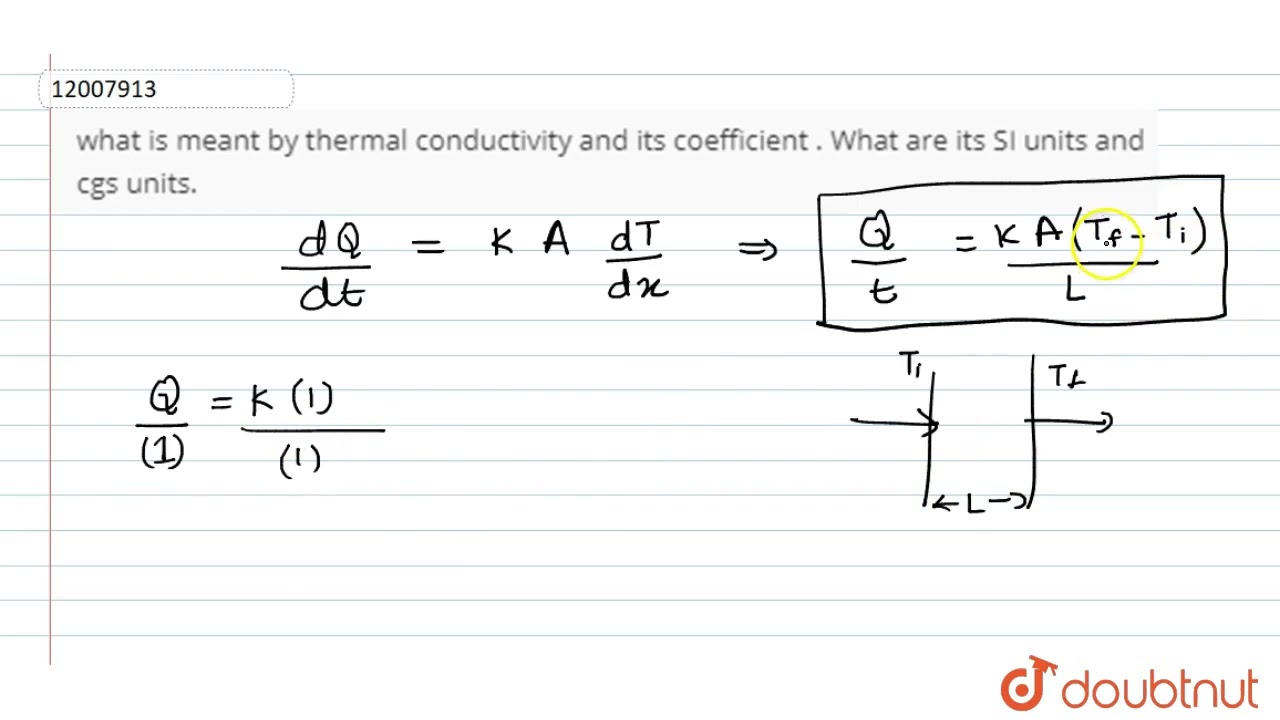 12007913
what is meant by thermal conductivity and its coefficient . What are its SI units and
cgs units.
dQ/dt = K A dT/dx ⇒ Q/t = K A (Tf - Ti)/L
Ti Tf
Q/(1) = K (1)/(1)
← L →
doubtnut